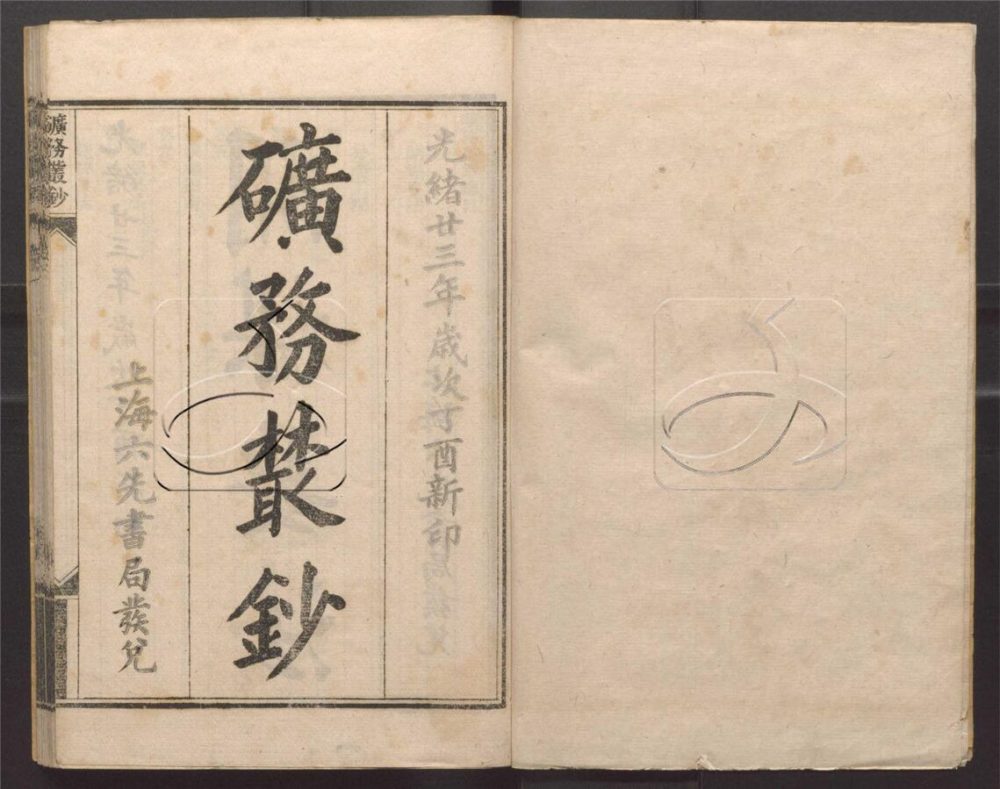 光緒廿三年歲次丁酉新印
礦務叢鈔
上海六先書局發兌
礦務叢鈔